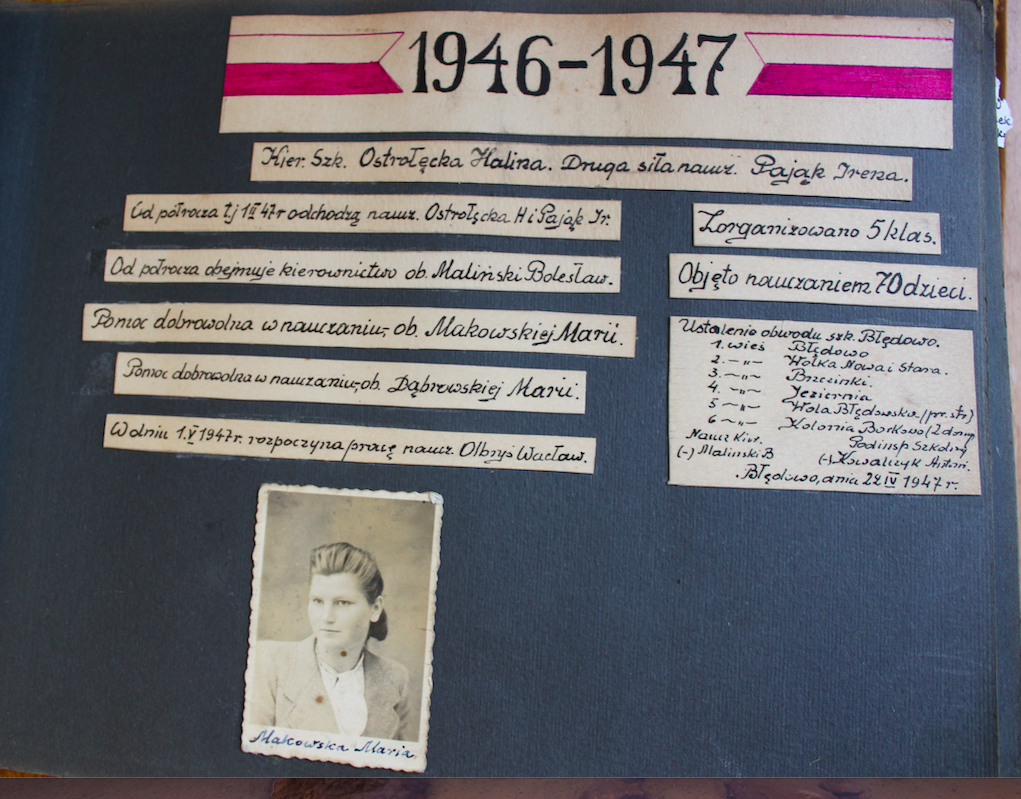 1946-1947
Kier. Szk. Ostrołęcka Halina. Druga siła naucz. Pająk Irena.
Od półrocza t.j 1 II 47r odchodzą naucz. Ostrołęcka H i Pająk Ir.
Od półrocza obejmuje kierownictwo ob. Maliński Bolesław.
Pomoc dobrowolna w nauczaniu, ob. Makowskiej Marii.
Pomoc dobrowolna w nauczaniu, ob. Dąbrowskiej Marii.
W dniu 1.V 1947r. rozpoczyna pracę naucz. Olbryś Wacław.
Zorganizowano 5 klas.
Objęto nauczaniem 70 dzieci.
Ustalenie obwodu szk. Błędowo.
1. wieś Błędowo
2. —„— Wólka Nowa i Stara.
3. —„— Brzezinki.
4. —„— Jeziernia
5 —„— Wola Błędowska /pr. str)
6 —„— Kolonia Borkowo (2 domy
Naucz Kier. Podinsp Szkolny
(-) Maliński B (-) Kowalczyk Antoni.
Błędowo, dnia 22 IV 1947 r.
Makowska Maria